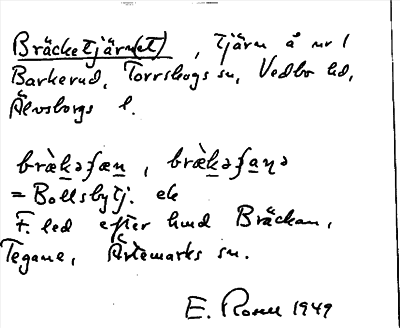 Bräcketjärn(et), tjärn å nr 1
Barkerud, Torrskogs sn, Vedbo hd,
Älvsborgs l.
brækəʃæn, brækəʃaɳə
= Bollsbytj. ek
F. led efter hmd Bräckan,
Tegane, Ärtemarks sn.
E. Rosell 1949